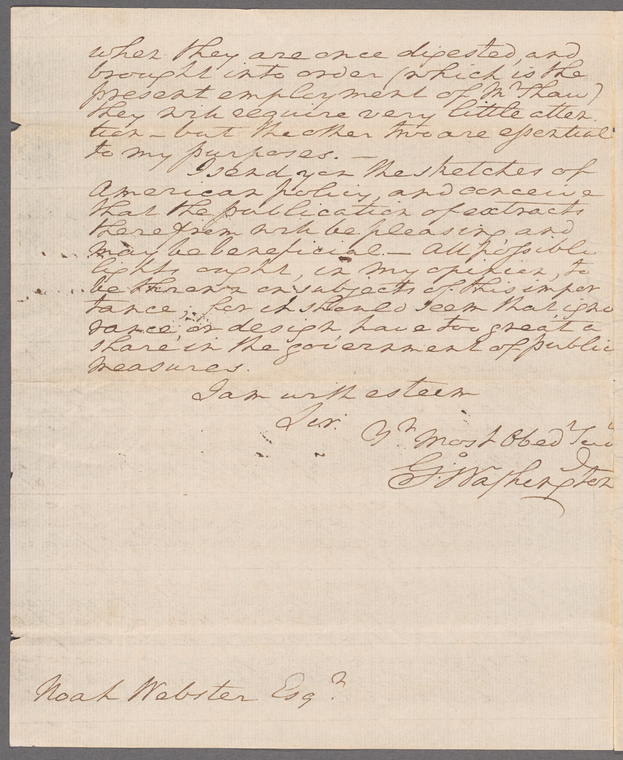 when they are once digested, and
brought into order (which is the
present employment of Mr Shaw)
they will require very little atten
tion – but the other two are essential
to my purposes. –
I send you the sketches of
American policy, and conceive
that the publication of extracts
therefrom will be pleasing and
may be beneficial. – All possible
lights ought, in my opinion, to
be thrown on subjects of this impor
tance, for it should seem that igno
rance, or design have too great a
share in the government of public
measures.
I am with esteem
Sir
Yr most Obedt
Go Washington
Noah Webster Esqr